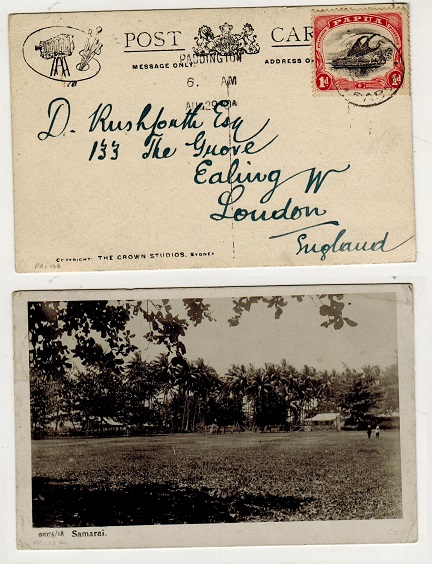 POST CARD
MESSAGE ONLY.
ADDRESS O
PADDINGTON
6. AM
PAPUA
1d 1d
D. Rushforth Esq
133 The Grove
Ealing W
London
England
COPYRIGHT: THE CROWN STUDIOS, SYDNEY
Samarai.